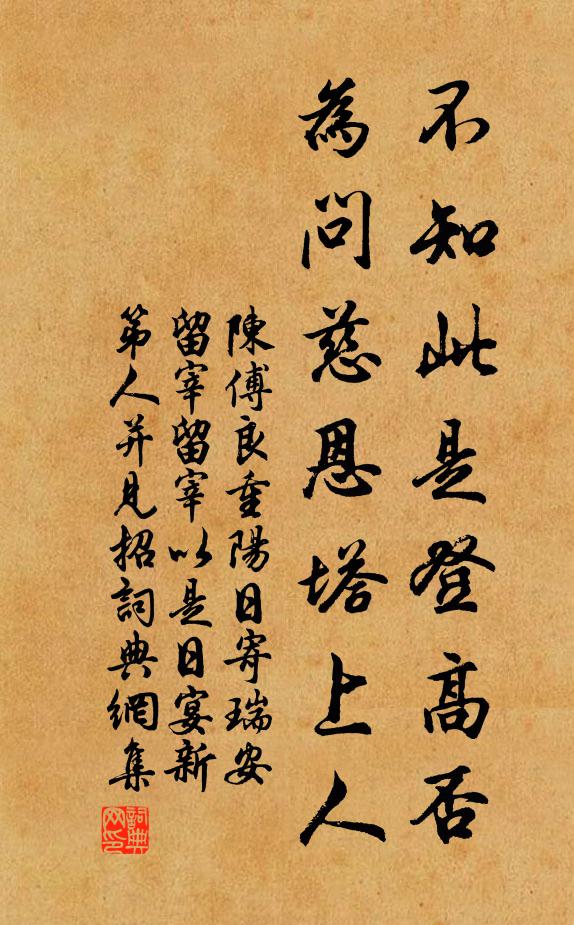 不知此是登高否
為問慈恩塔上人
陳傅良重陽日寄瑞安
留宰留宰以是日宴新
第人并見招詞典網集
詞典网印